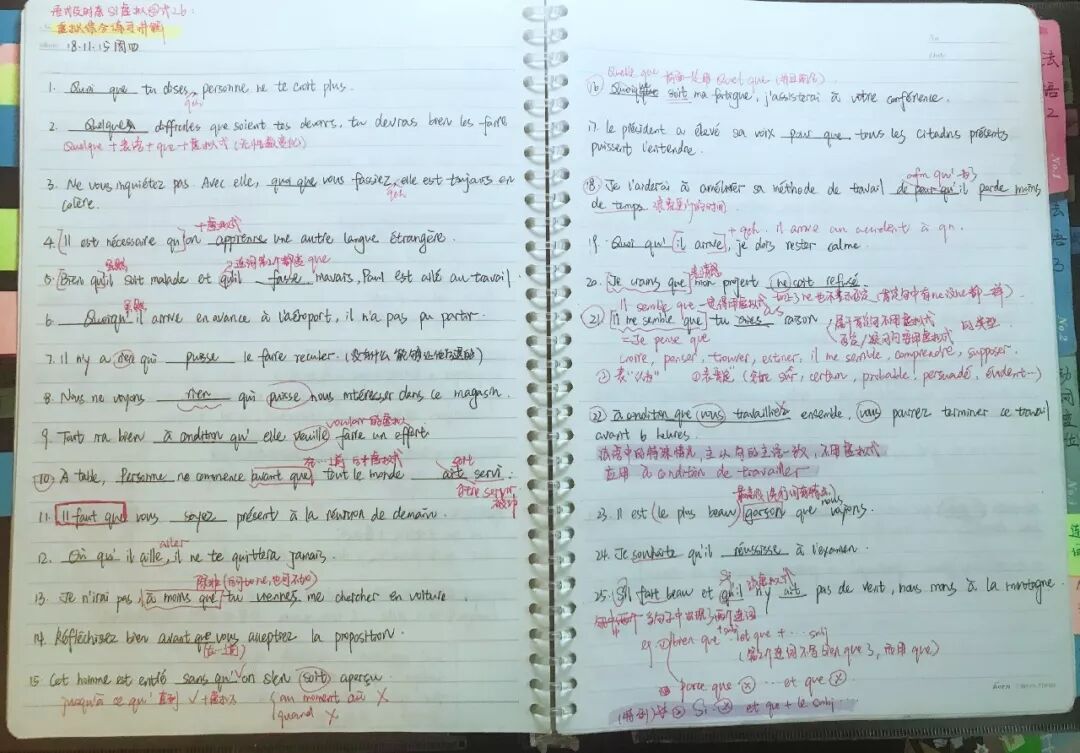 虚拟综合练习讲解
18.11.15 周四
1. Quoi que tu dises, personne ne te croit plus.
qch
2. Quelques difficiles que soient tes devoirs, tu devras bien les faire
Quelque + 表语 + que + 虚拟式
3. Ne vous inquiétez pas. Avec elle, quoi que vous fassiez, elle est toujours en
qch
colère.
+ 虚拟式
4. Il est nécessaire qu'on apprenne une autre langue étrangère.
虽然
连词第2个都变 que
5. Bien qu'il soit malade et qu'il fasse mauvais, Paul est allé au travail
虽然
6. Quoiqu'il arrive en avance à l'aéroport, il n'a pas pu partir.
7. Il n'y a rien qui puisse le faire reculer. (没有什么能够让他后退的)
8. Nous ne voyons rien qui puisse nous intéresser dans ce magasin.
vouloir 的虚拟
9. Tout ira bien à condition qu'elle veuille faire un effort.
soit
10. À table, Personne ne commence avant que tout le monde ait servi.
être servir
被动
11. Il faut que vous soyez présent à la réunion de demain.
aller
12. Où qu'il aille, il ne te quittera jamais.
除非 (后可加 ne, 也可不加)
13. Je n'irai pas, à moins que tu viennes me chercher en voiture.
14. Réfléchissez bien avant que vous acceptiez la proposition.
15. Cet homme est entré sans qu'on s'en soit aperçu.
jusqu'à ce qu' 直到 ✓ + 虚拟式
au moment où ×
quand ×
Quelle que
16. Quoique soit ma fatigue, j'assisterai à votre conférence.
17. Le président a élevé sa voix pour que tous les citadins présents
puissent l'entendre.
afin qu'
18. Je l'aiderai à améliorer sa méthode de travail de pour qu'il perde moins
de temps.
+ qch. il arrive un accident à qn.
19. Quoi qu'il arrive, je dois rester calme.
20. Je crains que mon projet ne soit refusé.
Il semble que
as
21. Il me semble que tu aies raison
= Je pense que
属于肯定句不用虚拟式
否定/疑问句要用虚拟式
的类型
croire, penser, trouver, estimer, il me semble, comprendre, supposer.
① 表"认为"
(être sûr, certain, probable, persuadé, évident…)
22. à condition que vous travailliez ensemble, vous pourrez terminer ce travail
avant 6 heures.
法语中的特殊情况, 主从句的主语一致, 不用虚拟式
应用 à condition de travailler
nous
23. Il est le plus beau garçon que voyons.
24. Je souhaite qu'il réussisse à l'examen.
Si
虚拟式
25. S'il fait beau et qu'il n'y ait pas de vent, nous irons à la montagne.
当句子中出现了两个连词
+ subj
eg. ① bien que … et que + … subj
(第2个连词不写 bien que 了, 而用 que)
parce que × … et que ×
(特别) ② Si × et que + le subj
法语2
No.1
法语3
No.2